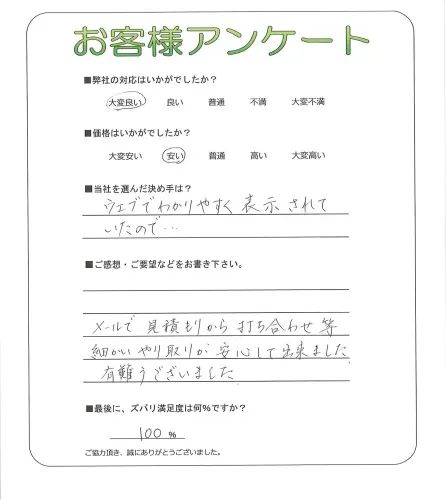 お客様アンケート
■弊社の対応はいかがでしたか?
大変良い 良い 普通 不満 大変不満
■価格はいかがでしたか?
大変安い 安い 普通 高い 大変高い
■当社を選んだ決め手は?
ウェブでわかりやすく表示されて
いたので…
■ご感想・ご要望などをお書き下さい。
メールで見積もりから打ち合わせ等
細かいやり取りが安心して出来ました
有難うございました
■最後に、ズバリ満足度は何%ですか?
100 %
ご協力頂き、誠にありがとうございました。